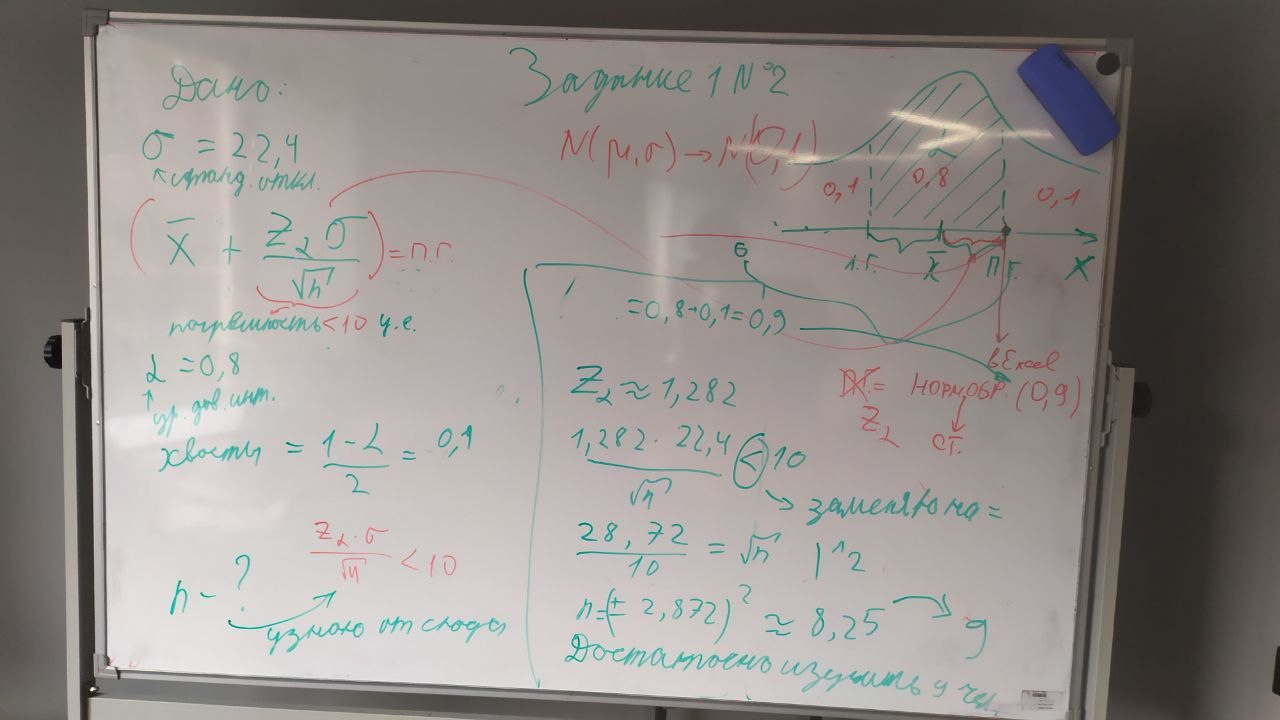 Задание 1 №2
Дано:
σ = 22,4
↖ станд. откл.
(x̄ + Z_α σ / √n) = п.г.
погрешность < 10 у.е.
α = 0,8
↑ ур. дов. инт.
хвосты = (1 - α) / 2 = 0,1
(Z_α · σ) / √n < 10
n - ?
узнаю отсюда
N(μ, σ) → N(0,1)
0,1 α 0,8 0,1
л.г. x̄ п.г. X
= 0,8+0,1=0,9
в Excel
= НОРМ.ОБР. (0,9)
Z_α
СТ.
Z_α ≈ 1,282
(1,282 · 22,4) / √n < 10
↘ заменяю на =
28,72 / 10 = √n |^2
n=(± 2,872)² ≈ 8,25 → 9
Достаточно изучить 9 чел.